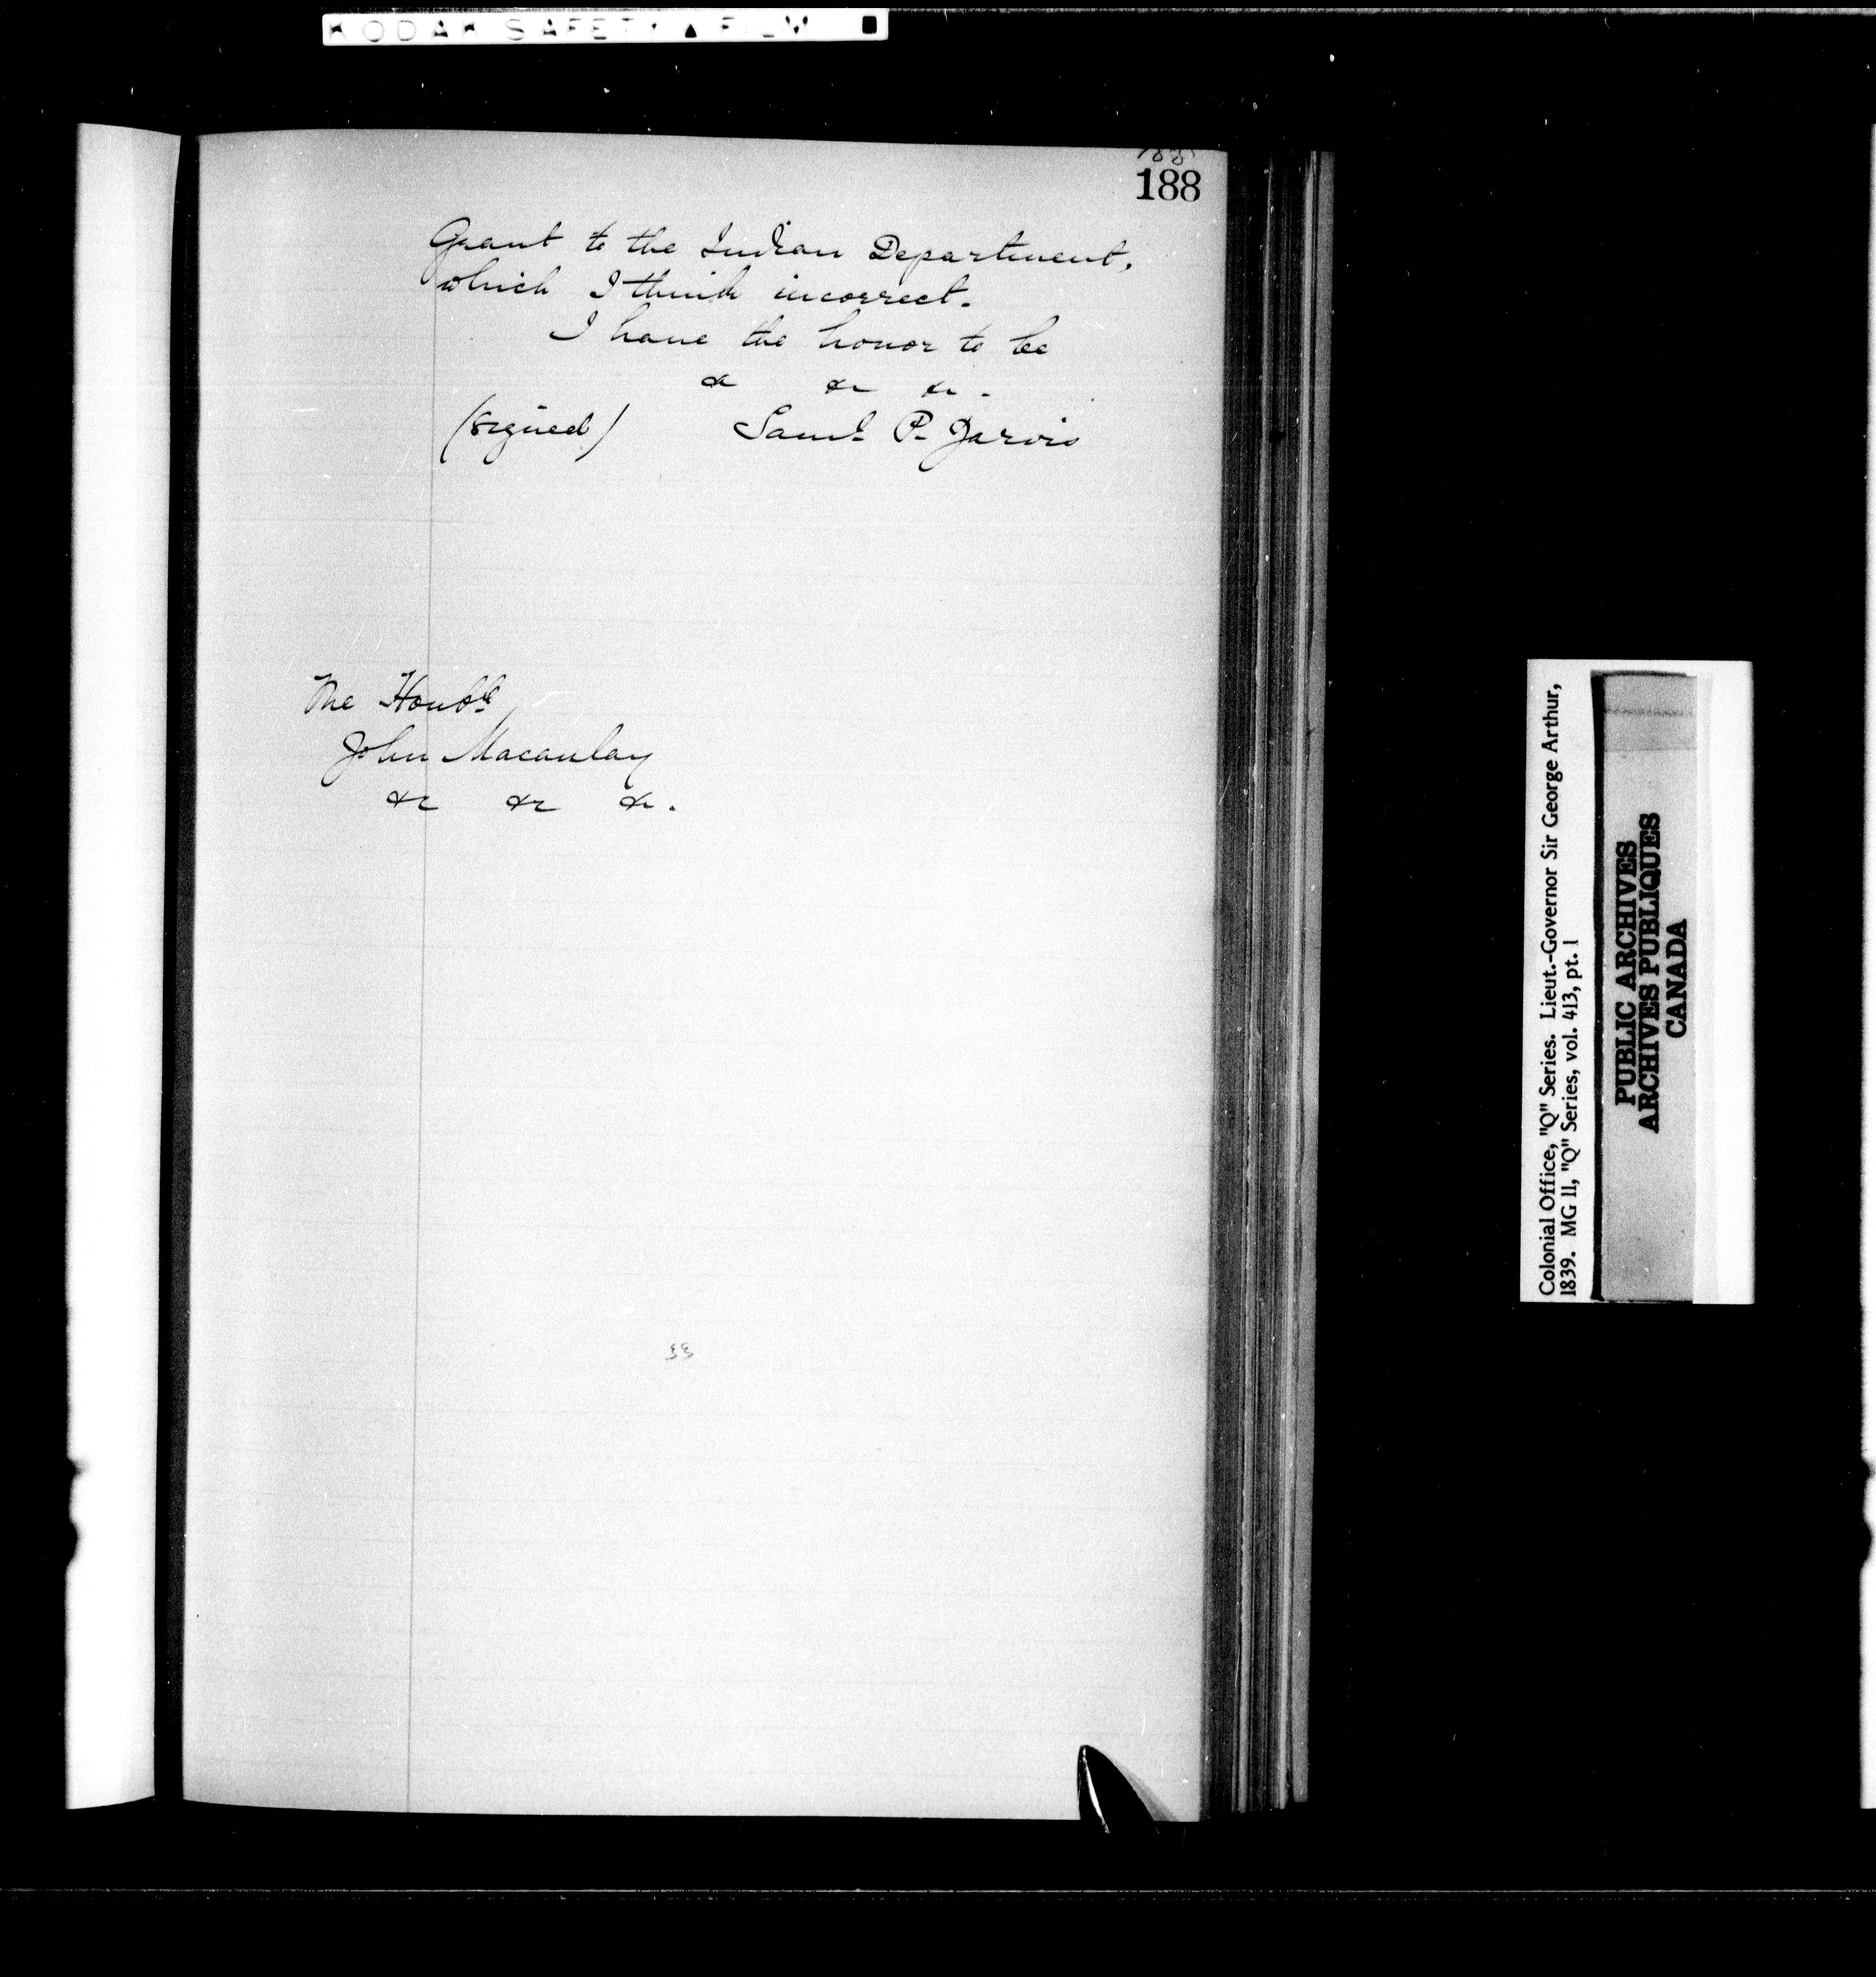 KODAK SAFETY ▲ FILM ■
188
188
Grant to the Indian Department,
which I think incorrect.
I have the honor to be
&c &c &c.
(signed) Saml P. Jarvis
The Honble
John Macaulay
&c &c &c.
Colonial Office, "Q" Series. Lieut.-Governor Sir George Arthur,
1839. MG 11, "Q" Series, vol. 413, pt. 1
PUBLIC ARCHIVES
ARCHIVES PUBLIQUES
CANADA